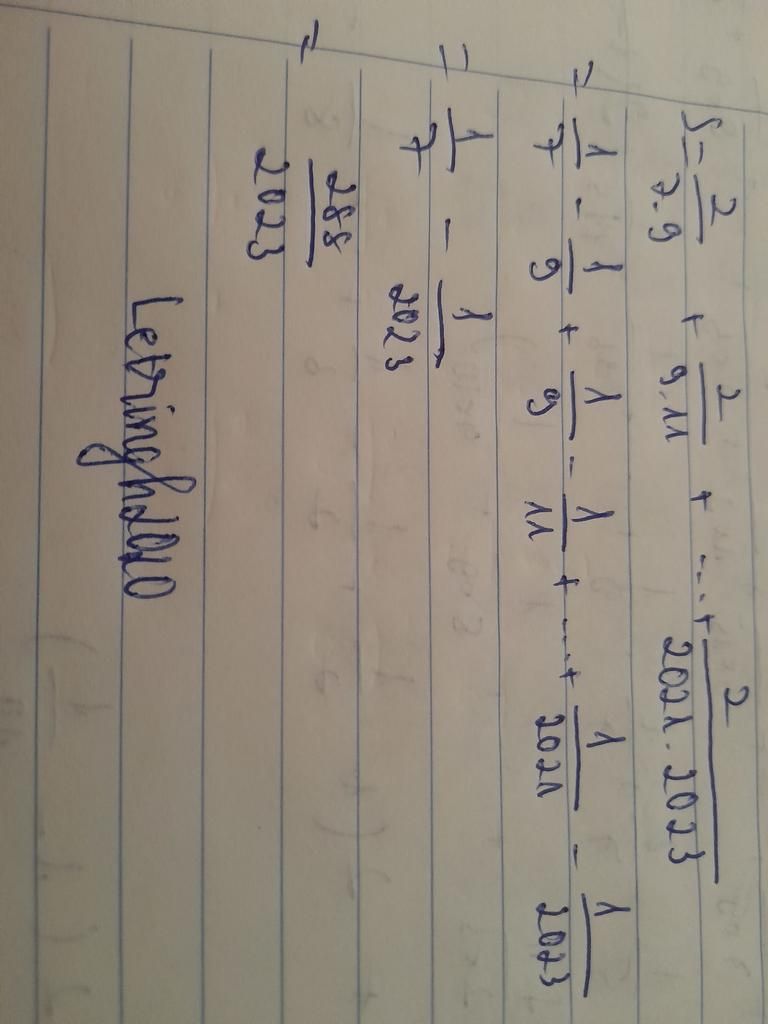 S = 2/7.9 + 2/9.11 + ... + 2/2021.2023
= 1/7 - 1/9 + 1/9 - 1/11 + ... + 1/2021 - 1/2023
= 1/7 - 1/2023
= 288/2023
Letringh2010